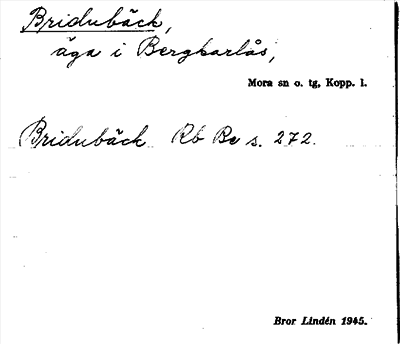 Bridubäck,
äga i Bergkarlås,
Mora sn o. tg, Kopp. l.
Bridubäck Rb Be s. 272.
Bror Lindén 1945.